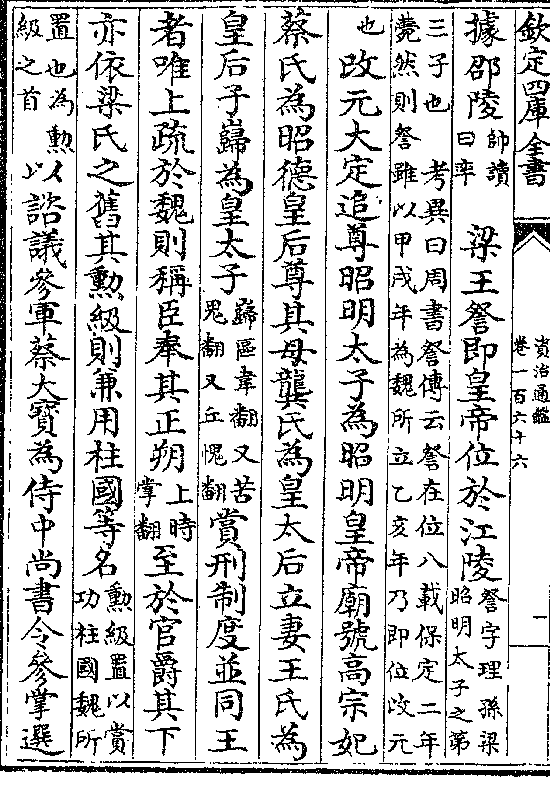 欽定四庫全書
資治通鑑
卷一百六十六
一
據邵陵帥讀曰率梁王詧即皇帝位於江陵詧字理孫梁昭明太子之第
三子也 考異曰周書詧傳云詧在位八載保定二年
薨然則詧雖以甲戌年為魏所立乙亥年乃即位改元
也改元大定追尊昭明太子為昭明皇帝廟號高宗妃
蔡氏為昭德皇后尊其母龔氏為皇太后立妻王氏為
皇后子巋為皇太子巋區韋翻又苦鬼翻又丘愧翻賞刑制度並同王
者唯上疏於魏則稱臣奉其正朔上時掌翻至於官爵其下
亦依梁氏之舊其勲級則兼用柱國等名勲級置以賞功柱國魏所
置也為勲級之首以諮議參軍蔡大寶為侍中尚書令參掌選